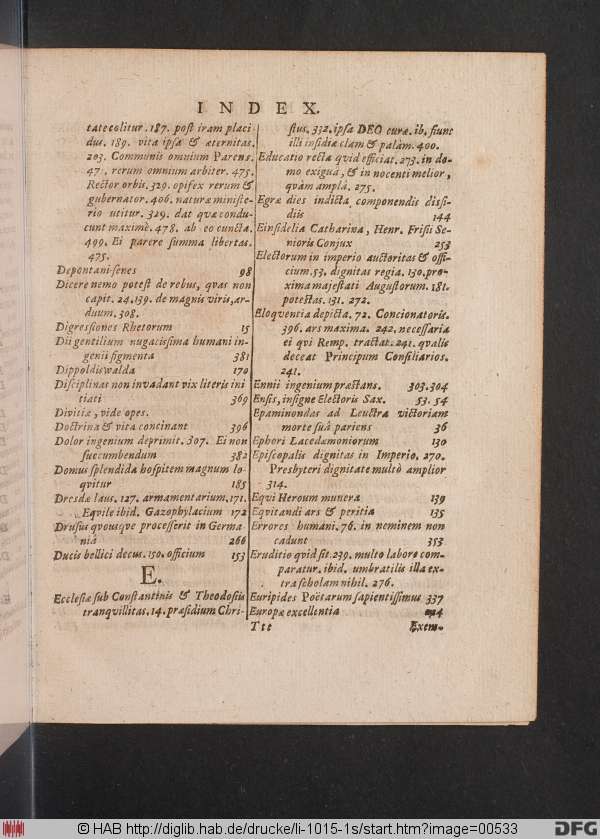 INDEX.
tate colitur. 187. post iram placi
dus. 189. vita ipsa & æternitas.
203. Communis omnium Parens.
47. rerum omnium arbiter. 475.
Rector orbis. 329. opifex rerum &
gubernator. 406. naturæ ministe-
rio utitur. 329. dat quæ condu-
cunt maximè. 478. ab eo cuncta.
499. Ei parere summa libertas.
475.
Depontani senes 98
Dicere nemo potest de rebus, quas non
capit. 24. 139. de magnis viris, ar-
duum. 308.
Digressiones Rhetorum 15
Dii gentilium nugacissima humani in-
genii figmenta 381
Dippoldiswalda 170
Disciplinas non invadant vix literis ini
tiati 369
Divitiæ, vide opes.
Doctrina & vita concinant 396
Dolor ingenium deprimit. 307. Ei non
succumbendum 382
Domus splendida hospitem magnum lo-
qvitur 185
Dresdæ laus. 127. armamentarium. 171.
Eqvile ibid. Gazophylacium 172
Drusus qvousqve processerit in Germa-
nia 266
Ducis bellici decus. 150. officium 153
E.
Ecclesiæ sub Constantinis & Theodosiis
tranqvillitas. 14. præsidium Chri-
stus. 332. ipsa DEO curæ. ib. fiunt
illi insidiæ clam & palàm. 400.
Educatio recta qvid efficiat. 273. in do-
mo exigua, & in nocenti melior,
qvàm amplâ. 275.
Egræ dies indicta componendis dissi-
diis 144
Einsidelia Catharina, Henr. Frisii Se-
nioris Conjux 253
Electorum in imperio auctoritas & offi-
cium. 53. dignitas regia. 130. pro-
xima majestati Augustorum. 181.
potestas. 131. 272.
Eloqventia depicta. 72. Concionatoris.
396. ars maxima. 242. necessaria
ei qvi Remp. tractat. 241. qvalis
deceat Principum Consiliarios.
241.
Ennii ingenium præstans. 303. 304
Ensis, insigne Electoris Sax. 53. 54
Epaminondas ad Leuctra victoriam
morte suâ pariens 36
Ephori Lacedæmoniorum 130
Episcopalis dignitas in Imperio. 270.
Presbyteri dignitate multò amplior
314.
Eqvi Heroum munera 139
Eqvitandi ars & peritia 135
Errores humani. 76. in neminem non
cadunt 353
Eruditio qvid sit. 239. multo labore com-
paratur. ibid. umbratilis illa ex-
tra scholam nihil. 276.
Euripides Poëtarum sapientissimus 337
Europæ excellentia
Ttt Exem-
© HAB http://diglib.hab.de/drucke/li-1015-1s/start.htm?image=00533
DFG